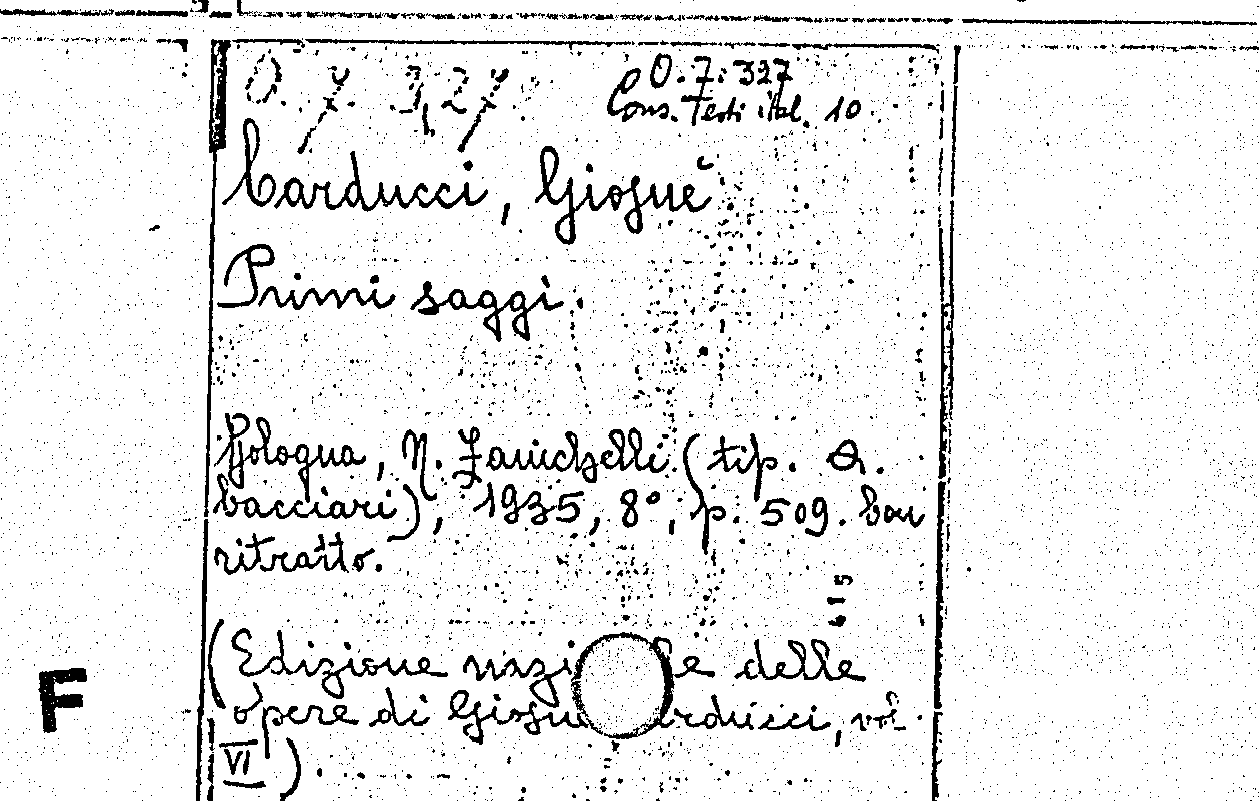 O. 7. 327
O. 7. 327
Cons. Testi ital. 10.
Carducci, Giosuè
Primi saggi.
Bologna, N. Zanichelli (tip. A.
Cacciari), 1935, 8°, p. 509. Con
ritratto.
615
(Edizione nazi le delle
opere di Giosu arducci, vol.
VI).
F